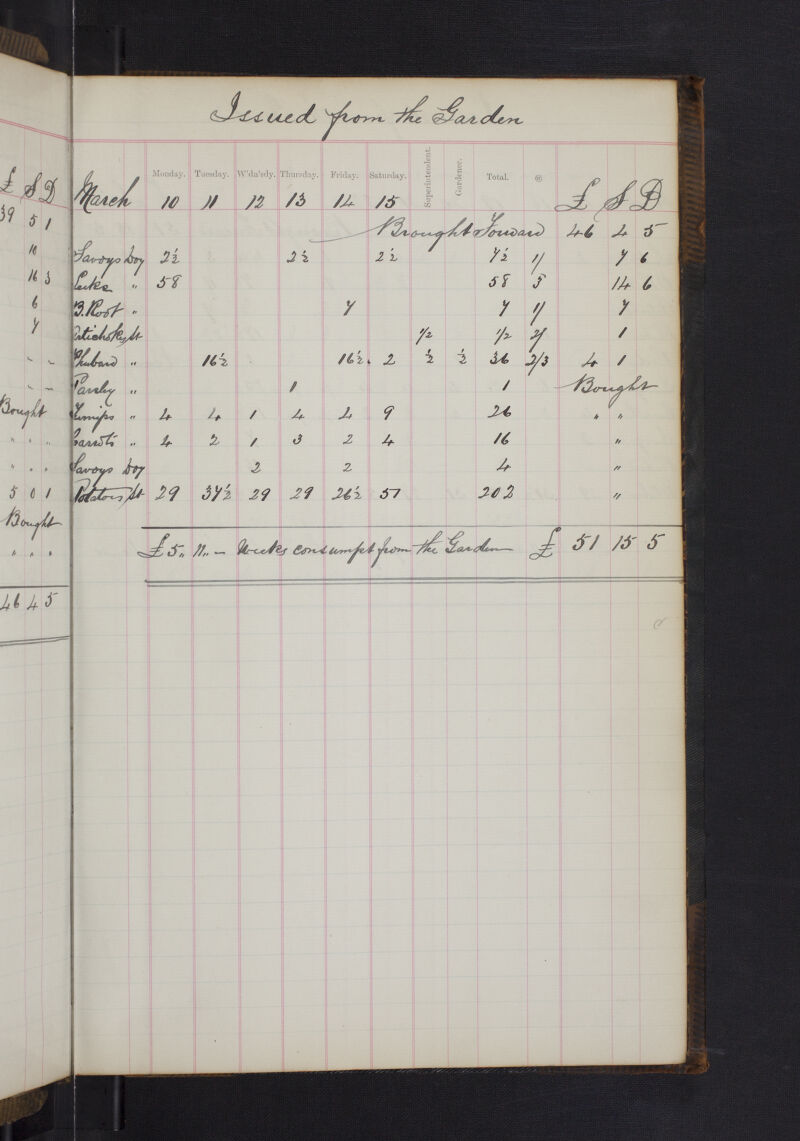 Issued from the Garden
£ S D
39 5 1
10
16 3
6
7
- -
- -
Bought
" " "
" " "
5 0 1
Bought
" " "
46 4 5
Monday. Tuesday. W'da'sdy. Thursday. Friday. Saturday. Superintendent. Gardener. Total. @
March 10 11 12 13 14 15 £ S D
Brought Forward 46 4 5
Savoys Doz 2½ 2½ 2½ 7½ 1/ 7 6
Leeks " 58 58 3 14 6
B. Root " 7 7 1/ 7
Artichokes St ½ ½ 2/ 1
Rhubard " 16½ 16½ 2 ½ ½ 36 2/3 4 1
Parsley " 1 1 Bought
Turnips " 4 4 1 4 4 9 26 " "
Carrots " 4 2 1 3 2 4 16 "
Savoys Doz 2 2 4 "
Potatoes St 29 37½ 29 29 26½ 51 202 "
£5,, 11,, - Weeks consumpt from the Garden £ 51 15 5